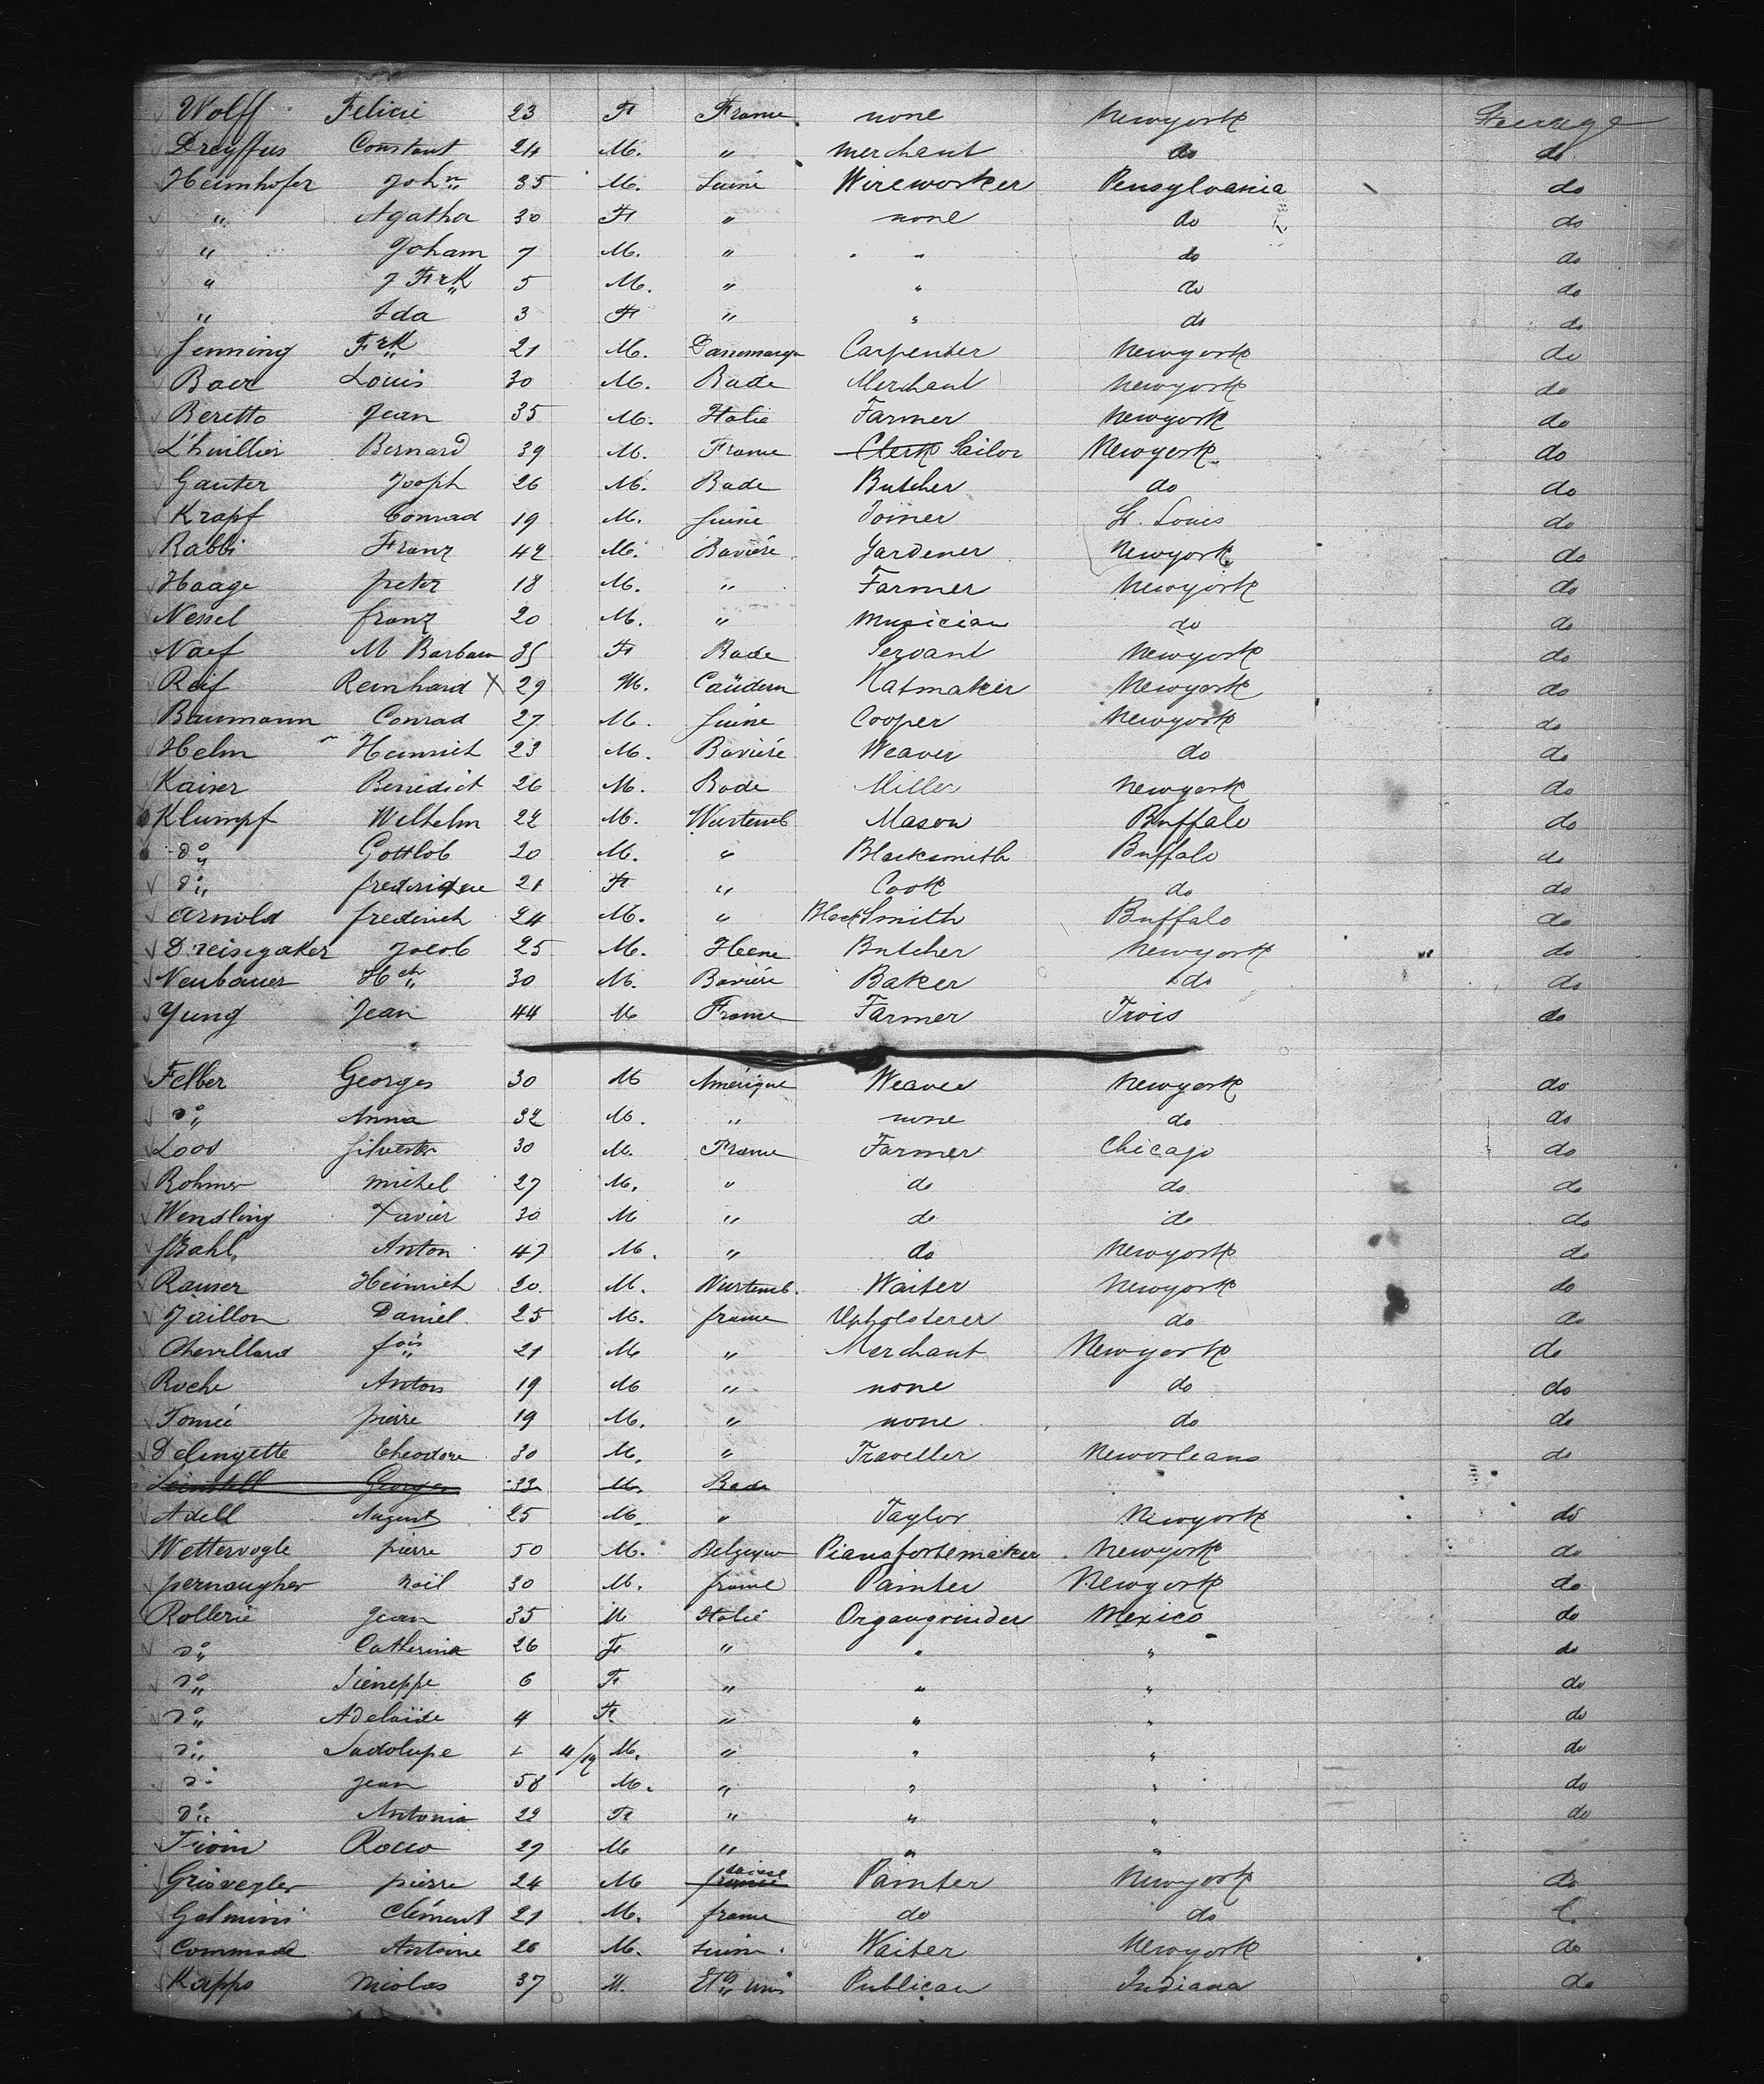 Wolff Felicie 23 F France none Newyork Steerage
Dreyffus Constant 24 M. " merchant do do
Heimhofer Joh" 35 M. Suisse Wireworker Pensylvania do
" Agatha 30 F " none do do
" Joham 7 M. " " do do
" J Frk 5 M. " " do do
" Ida 3 F " " do do
Jenning Frk 21 M. Carpenter Newyork do
Baer Louis 30 M. Bade Merchant Newyork do
Beretto Jean 35 M. Italie Farmer Newyork do
L'huillier Bernard 39 M. France Clerk Sailor Newyork do
Gauter Joseph 26 M. Bade Butcher do do
Krapf Conrad 19 M. Suisse Joiner St. Louis do
Rabbi Franz 42 M. Bavière Gardener Newyork do
Haage peter 18 M. " Farmer Newyork do
Nessel franz 20 M. " Musician do do
Naef M Barbara 35 F Bade Servant Newyork do
Reif Reinhard X 29 M. Hatmaker Newyork do
Baumann Conrad 27 M. Suisse Cooper Newyork do
Helm Heinrich 23 M. Bavière Weaver do do
Kaiser Benedict 26 M. Bade Miller Newyork do
Klumpf Wilhelm 22 M. Wurtemb Mason Buffalo do
do Gottlob 20 M. " Blacksmith Buffalo do
do frederique 21 F " Cook do do
Arnold frederich 24 M. " Black Smith Buffalo do
Dreisigaker Jacob 25 M. Hesse Butcher Newyork do
Neubauer Hch 30 M. Bavière Baker do do
Yung Jean 44 M France Farmer Trois do
Felber Georges 30 M Amérique Weaver Newyork do
do Anna 32 M. " none do do
Loos Silvester 30 M. France Farmer Chicago do
Rohmer michel 27 M. " do do do
Wendling Xavier 30 M " do do do
Anton 47 M. " do Newyork do
Rauser Heinrich 20 M. Wurtemb. Waiter Newyork do
Jaillon Daniel 25 M. france Upholsterer do do
Chevillard fois 21 M " Merchant Newyork do
Roche Anton 19 M " none do do
Tomié pierre 19 M. " none do do
Delingette Theodore 30 M. " Traveller Neworleans do
Georges 33 M. Bade
Adell August 25 M. " Taylor Newyork do
Wettervogle pierre 50 M. Belgique Pianofortemaker Newyork do
noël 30 M. france Painter Newyork do
Rollerie Jean 35 M Italie Organgrinder Mexico do
do Catherina 26 F " " " do
do 6 F " " " do
do Adelaide 4 F " " " do
do 4/12 M. " " " do
do jean 58 M. " " " do
do Antonia 22 F " " " do
Rocco 27 M " " "
pierre 24 M france suisse Painter Newyork do
Galmini Clément 21 M. france do do
Commode Antoine 26 M. suisse Waiter Newyork do
Kapps nicolas 37 M. Ets unis Publican Indiana do